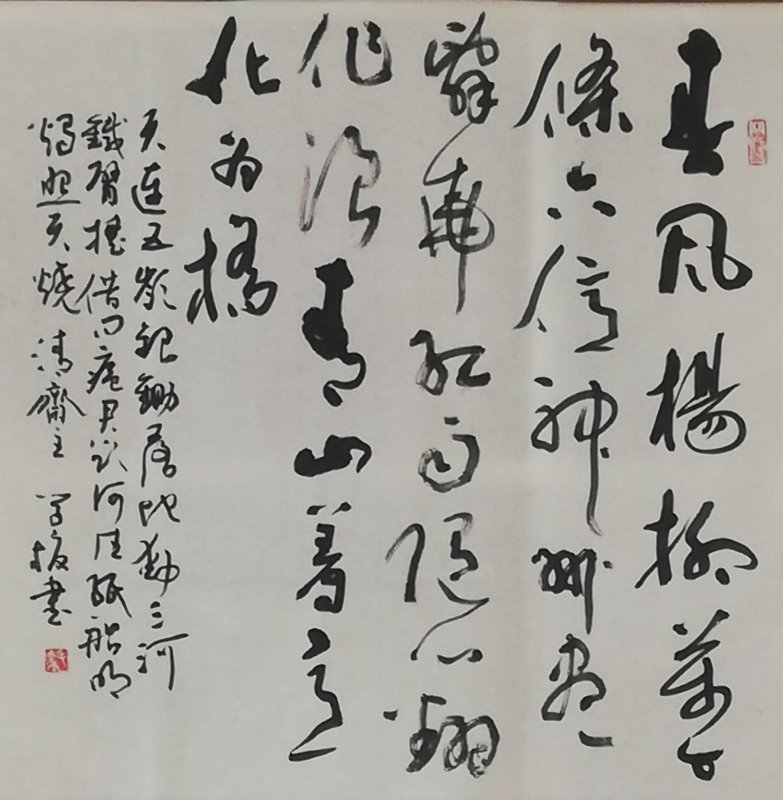 春風楊柳萬千
條六億神州盡
舜堯紅雨隨心翻
作浪青山着意
化為橋
天連五嶺銀鋤落地動三河
鐵臂搖借問瘟君欲何往紙船明
燭照天燒 清齋主 書